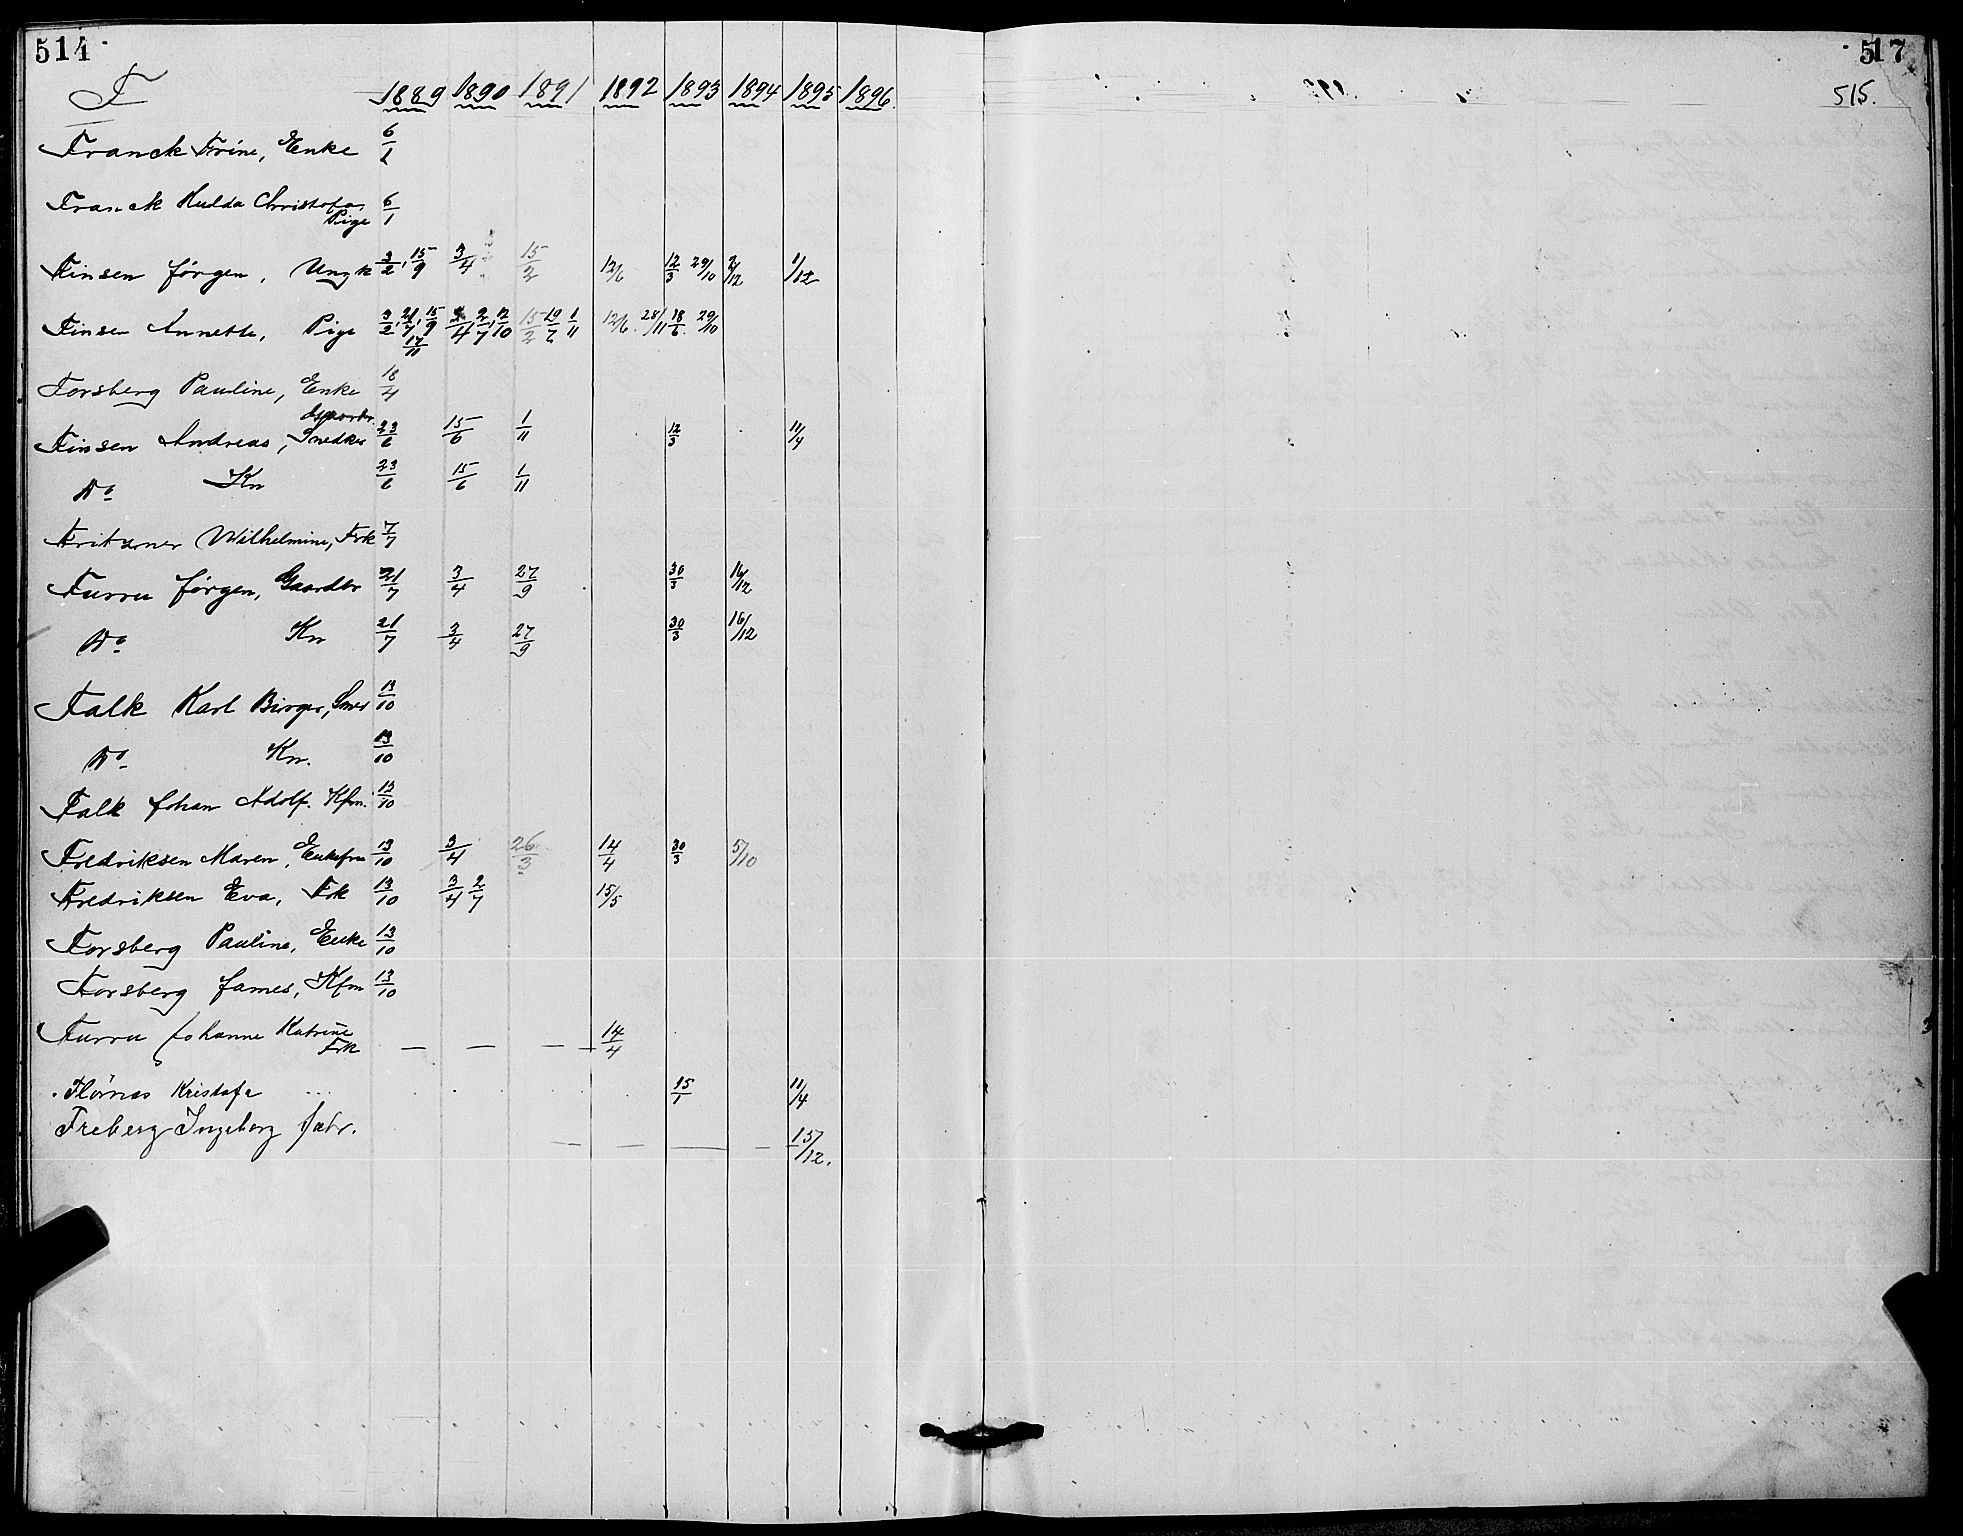 514
F
1889 1890 1891 1892 1893 1894 1895 1896
Franck Trine, Enke 6/1
Franck Hulda Christofa, 6/1
Pige
Finsen Jørgen, Ungk 3/2, 15/9 3/4 15/2 12/6 12/3 29/10 2/12 1/12
Finsen Annette, Pige 3/2, 21/7, 15/9 3/4, 2/7, 12/10 15/2 19/7 1/11 12/6 28/11 18/6 29/10
17/11
Forsberg Pauline, Enke 18/4
Finsen Andreas, Snedker 23/6 15/6 1/11 12/3 11/4
Do Kn 23/6 15/6 1/11
Fritzner Wilhelmine, Frk 7/7
Furru Jørgen, Gaardbr 21/7 3/4 27/9 30/3 16/12
Do Kn 21/7 3/4 27/9 30/3 16/12
Falk Karl Birger, 13/10
Do Kn. 13/10
Falk Johan Adolf. Kfm. 13/10
Fredriksen Maren, Enkefru 13/10 3/4 26/3 14/4 30/3 5/10
Fredriksen Eva, Frk 13/10 3/4 2/7 15/5
Forsberg Pauline, Enke 13/10
Forsberg James, Kfm 13/10
Furru Johanne Katrine
Frk — — — 14/4
Flörnas Kristofa 15/1 11/4
Freberg Ingeborg Jabr. — — — — 15/12.
517
515.